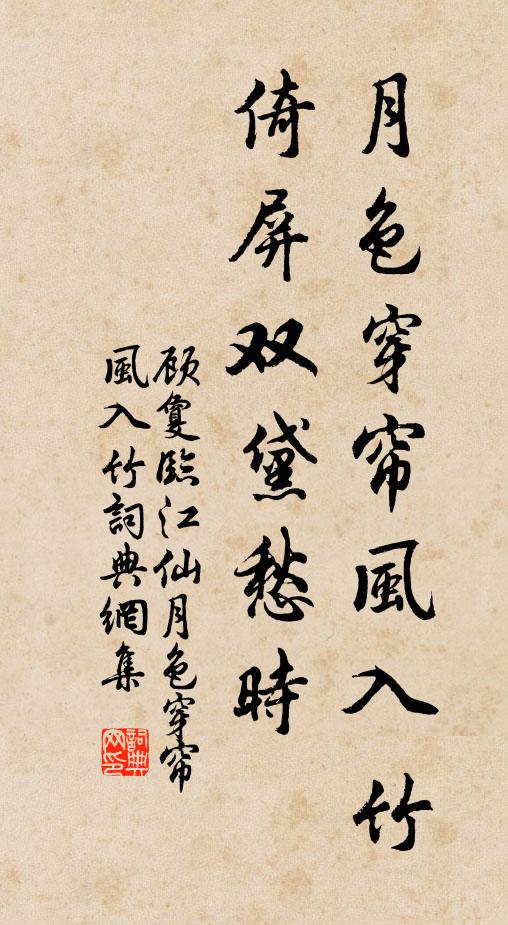 月色穿帘風入竹
倚屏双黛愁時
顾夐臨江仙月色穿帘
風入竹詞典網集
詞典网印